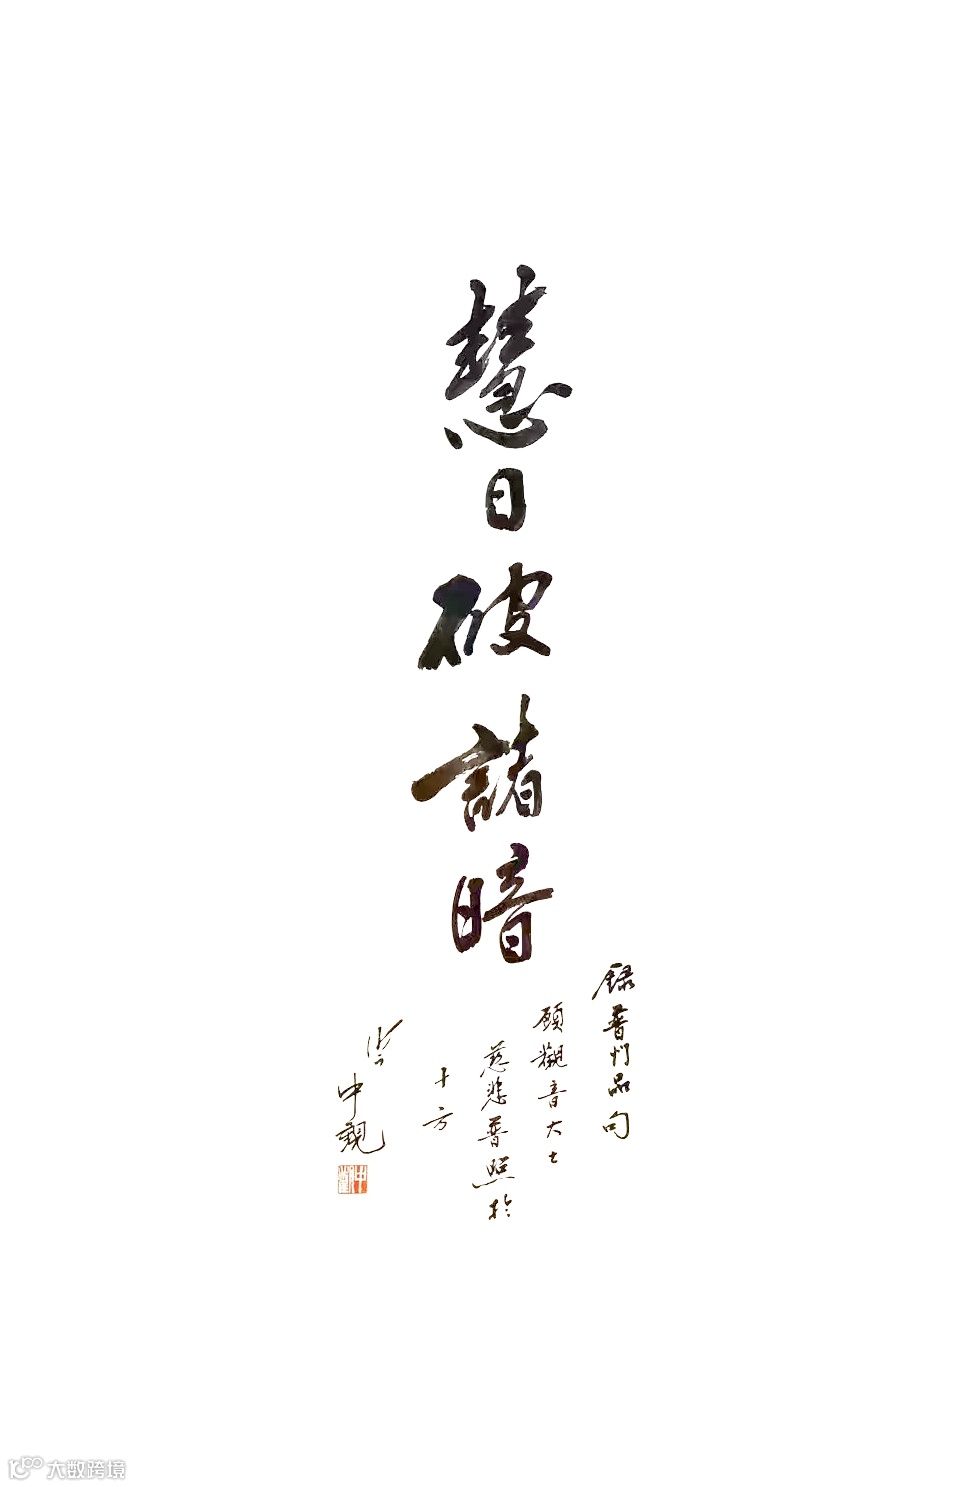 慧日破諸暗
錄普门品句
願觀音大士
慈悲普照於
十方
中觀
大数跨境